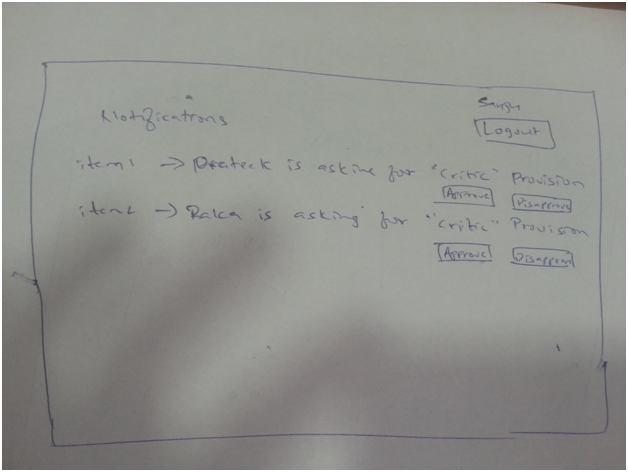 Notifications
Logout
item1 → Prateek is asking for "critic" Provision
Approve Disapprove
item2 → is asking for "critic" Provision
Approve Disapprove